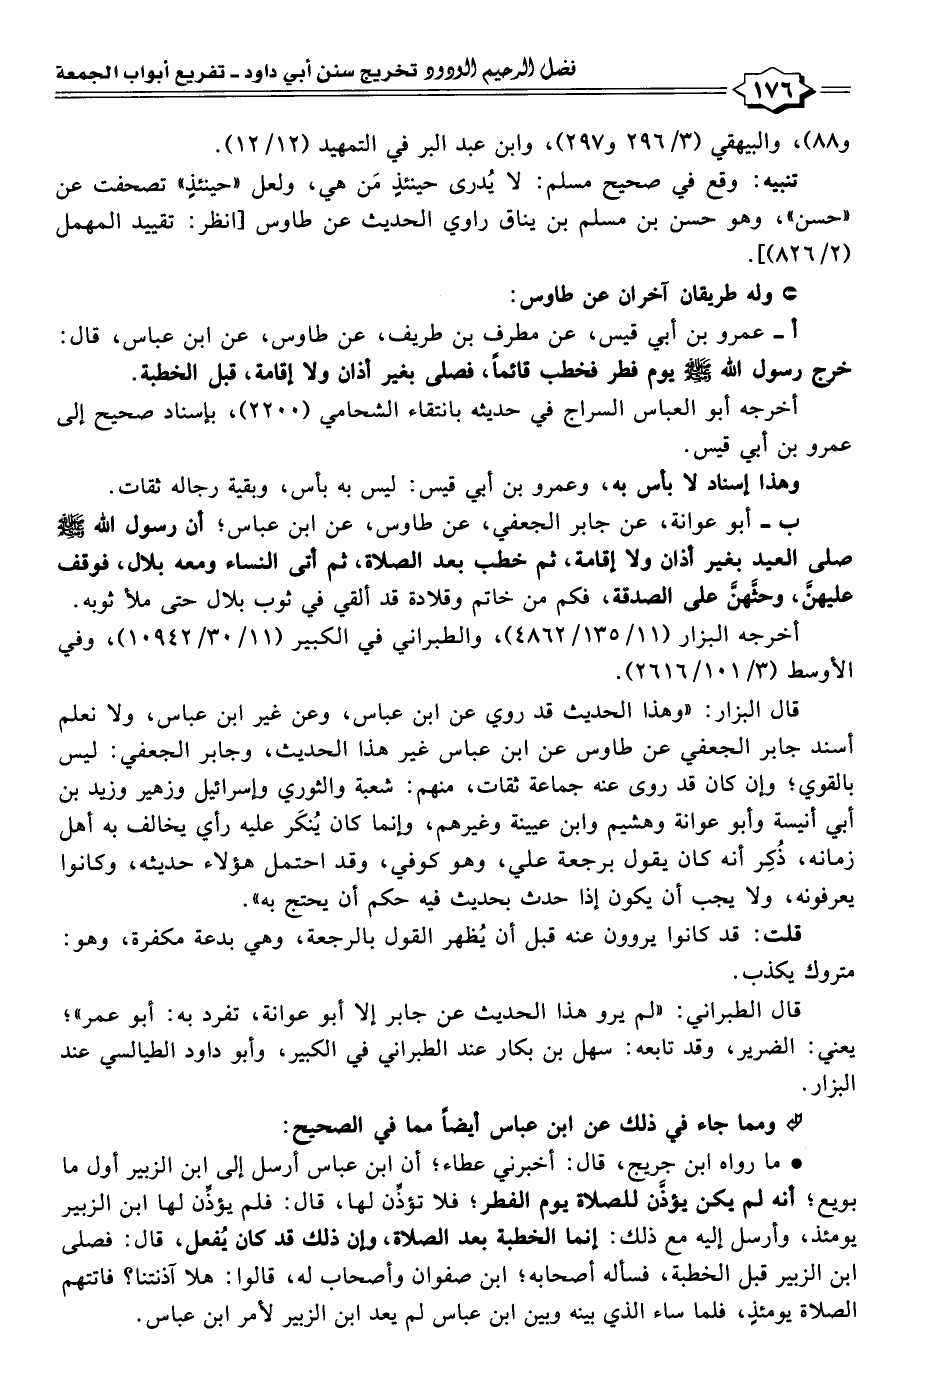 فضل الرحيم الودود تخريج سنن أبي داود - تفريع أبواب الجمعة
١٧٦
و٨٨)، والبيهقي (٣/ ٢٩٦ و٢٩٧)، وابن عبد البر في التمهيد (١٢/ ١٢).
تنبيه: وقع في صحيح مسلم: لا يُدرى حينئذٍ مَن هي، ولعل «حينئذٍ» تصحفت عن
«حسن»، وهو حسن بن مسلم بن يناق راوي الحديث عن طاوس [انظر: تقييد المهمل
(٢/ ٨٢٦)].
وله طريقان آخران عن طاوس:
أ - عمرو بن أبي قيس، عن مطرف بن طريف، عن طاوس، عن ابن عباس، قال:
خرج رسول الله ﷺ يوم فطر فخطب قائماً، فصلى بغير أذان ولا إقامة، قبل الخطبة.
أخرجه أبو العباس السراج في حديثه بانتقاء الشحامي (٢٢٠٠)، بإسناد صحيح إلى
عمرو بن أبي قيس.
وهذا إسناد لا بأس به، وعمرو بن أبي قيس: ليس به بأس، وبقية رجاله ثقات.
ب - أبو عوانة، عن جابر الجعفي، عن طاوس، عن ابن عباس؛ أن رسول الله ﷺ
صلى العيد بغير أذان ولا إقامة، ثم خطب بعد الصلاة، ثم أتى النساء ومعه بلال، فوقف
عليهنَّ، وحثَّهنَّ على الصدقة، فكم من خاتم وقلادة قد ألقي في ثوب بلال حتى ملأ ثوبه.
أخرجه البزار (١١/ ١٣٥/ ٤٨٦٢)، والطبراني في الكبير (١١/ ٣٠/ ١٠٩٤٢)، وفي
الأوسط (٣/ ١٠١/ ٢٦١٦).
قال البزار: «وهذا الحديث قد روي عن ابن عباس، وعن غير ابن عباس، ولا نعلم
أسند جابر الجعفي عن طاوس عن ابن عباس غير هذا الحديث، وجابر الجعفي: ليس
بالقوي؛ وإن كان قد روى عنه جماعة ثقات، منهم: شعبة والثوري وإسرائيل وزهير وزيد بن
أبي أنيسة وأبو عوانة وهشيم وابن عيينة وغيرهم، وإنما كان يُنكَر عليه رأي يخالف به أهل
زمانه، ذُكِر أنه كان يقول برجعة علي، وهو كوفي، وقد احتمل هؤلاء حديثه، وكانوا
يعرفونه، ولا يجب أن يكون إذا حدث بحديث فيه حكم أن يحتج به».
قلت: قد كانوا يروون عنه قبل أن يُظهر القول بالرجعة، وهي بدعة مكفرة، وهو:
متروك يكذب.
قال الطبراني: «لم يرو هذا الحديث عن جابر إلا أبو عوانة، تفرد به: أبو عمر»؛
يعني: الضرير، وقد تابعه: سهل بن بكار عند الطبراني في الكبير، وأبو داود الطيالسي عند
البزار.
ومما جاء في ذلك عن ابن عباس أيضاً مما في الصحيح:
• ما رواه ابن جريج، قال: أخبرني عطاء؛ أن ابن عباس أرسل إلى ابن الزبير أول ما
بويع؛ أنه لم يكن يؤذَّن للصلاة يوم الفطر؛ فلا تؤذِّن لها، قال: فلم يؤذِّن لها ابن الزبير
يومئذ، وأرسل إليه مع ذلك: إنما الخطبة بعد الصلاة، وإن ذلك قد كان يُفعل، قال: فصلى
ابن الزبير قبل الخطبة، فسأله أصحابه؛ ابن صفوان وأصحاب له، قالوا: هلا آذنتنا؟ فاتتهم
الصلاة يومئذٍ، فلما ساء الذي بينه وبين ابن عباس لم يعد ابن الزبير لأمر ابن عباس.